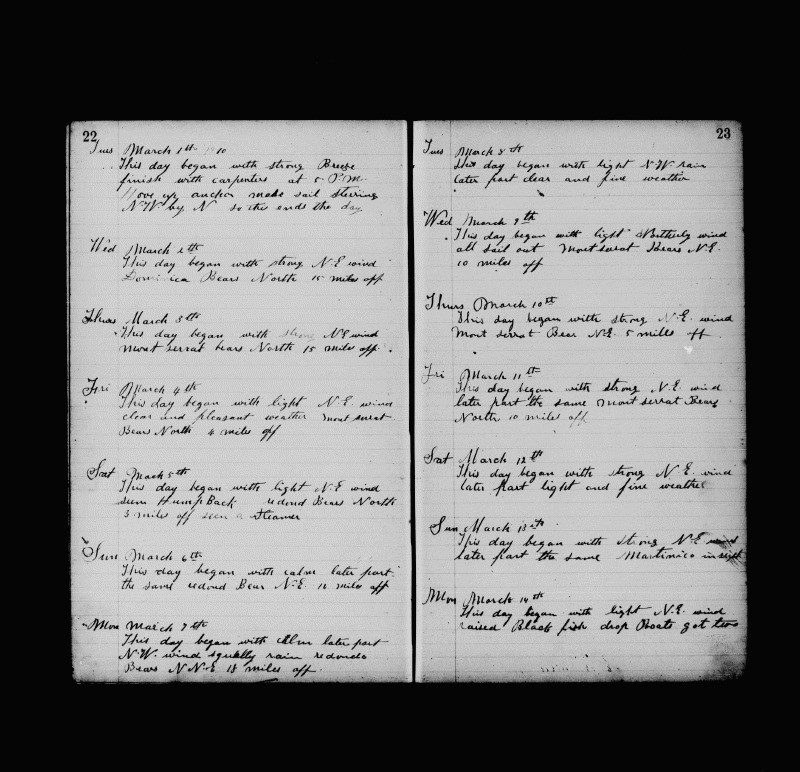 22
Tues March 1st 1910
This day began with strong Breeze
finish with carpenters at 5 P.M.
Hove up anchor make sail steering
N.W by N so the ends the day
Wed March 2th
This day began with strong N.E wind
Dominica Bears North 15 miles off
Thurs March 3th
This day began with strong N.E wind
mont serrat bears North 15 miles off
Fri March 4th
This day began with light N.E. wind
clear and pleasant weather mont serrat
Bears North 4 miles off
Sat March 5th
This day began with light N.E. wind
seen Hump Back redond Bears North
3 miles off seen a steamer
Sun March 6th
This day began with calm later part
the same redond Bear N.E. 10 miles off
Mon March 7th
This day began with Clm later part
N.W. wind squally rain redondo
Bears N N.E 18 miles off
23
Tues March 8th
This day began with light N.W rain
later part clear and fine weather
Wed March 9th
This day began with light wind
all sail out Mont serrat Bears N.E.
10 miles off
Thurs March 10th
This day began with strong N.E. wind
Mont serrat Bear N.E. 5 miles off
Fri March 11th
This day began with strong N.E. wind
later part the same mont serrat Bears
North 10 miles off
Sat March 12th
This day began with strong N.E. wind
later part light and fine weather
Sun March 13th
This day began with strong N.E wind
later part the same Martinico in sight
Mon March 14th
This day began with light N.E. wind
raised Black fish drop Boats got two